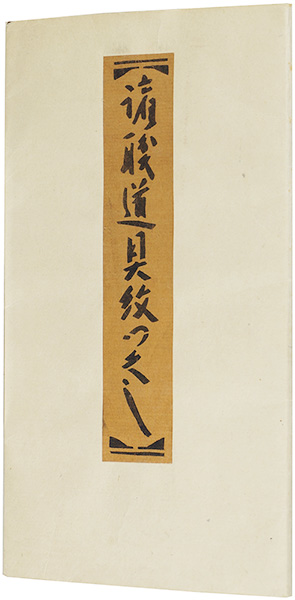 諸職道具紋つくし